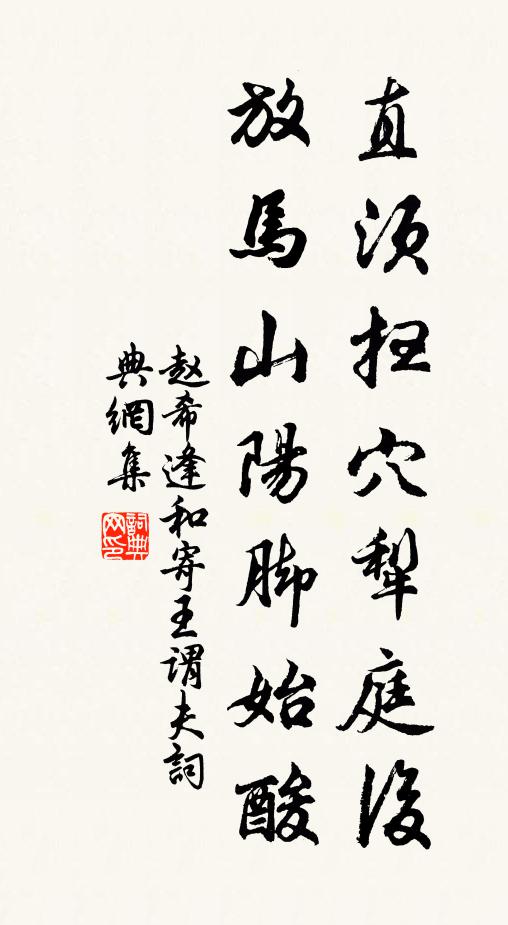 直須扫穴犁庭後
放馬山陽脚始酸
赵希逢和寄王谓夫詞
典網集
詞典
网印